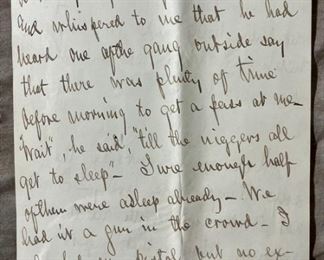 and whispered to me that he had
heard one of the gang outside say
that there was plenty of time
before morning to get a pass at me-
"Wait", he said, "till the niggers all
get to sleep"- I was enough half
of them were asleep already- We
had n't a gun in the crowd- I
pistol but no ex-